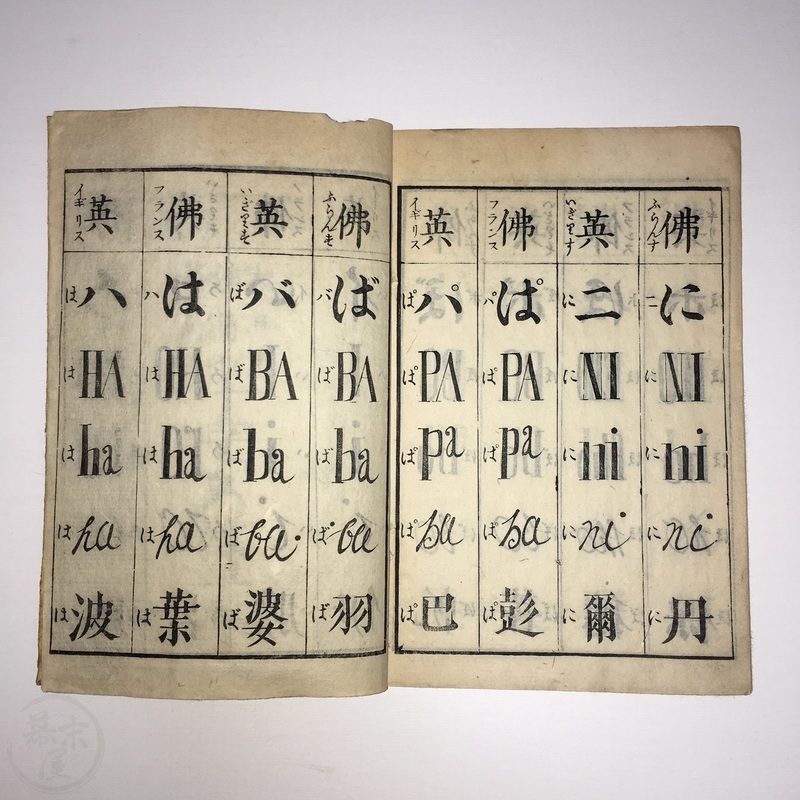 佛 ふらんす に ニ NI に ni に ni に 丹 に
英 いぎりす ニ に NI に ni に ni に 爾 に
佛 フランス ぱ パ PA ぱ pa ぱ pa ぱ 彭 ぱ
英 イギリス パ ぱ PA ぱ pa ぱ pa ぱ 巴 ぱ
佛 ふらんす ば バ BA ば ba ば ba ば 羽 ば
英 いぎりす バ ば BA ば ba ば ba ば 婆 ば
佛 フランス は ハ HA は ha は ha は 葉 は
英 イギリス ハ は HA は ha は ha は 波 は
幕末屋